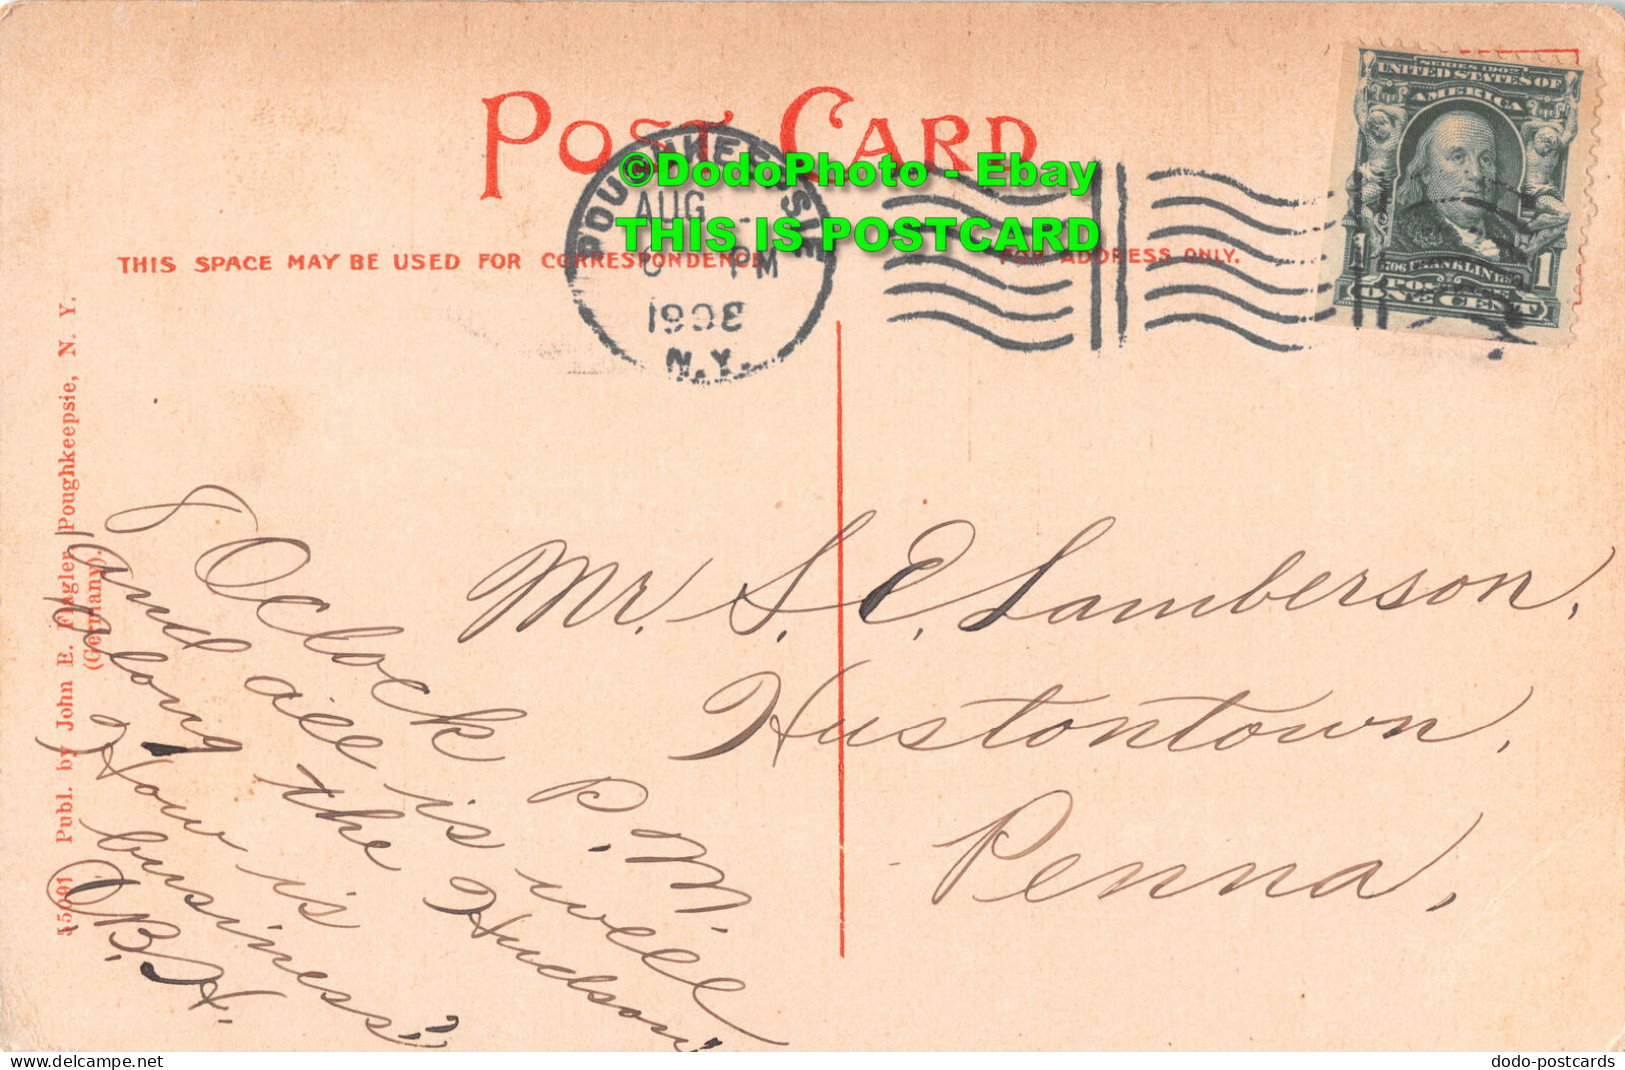 POST CARD
THIS SPACE MAY BE USED FOR CORRESPONDENCE
FOR ADDRESS ONLY.
POUGHKEEPSIE
AUG
PM
1908
N.Y.
SERIES 1902
UNITED STATES OF
AMERICA
1706 FRANKLIN 1790
POSTAGE
1 ONE CENT 1
©DodoPhoto - Ebay
THIS IS POSTCARD
15,091 Publ. by John E. Flagler, Poughkeepsie, N. Y.
(Germany).
8 Oclock P.M.
and all is well
along the Hudson
How is
business?
O.B.H.
Mr. S. E. Lamberson,
Hustontown,
Penna,
www.delcampe.net
dodo-postcards